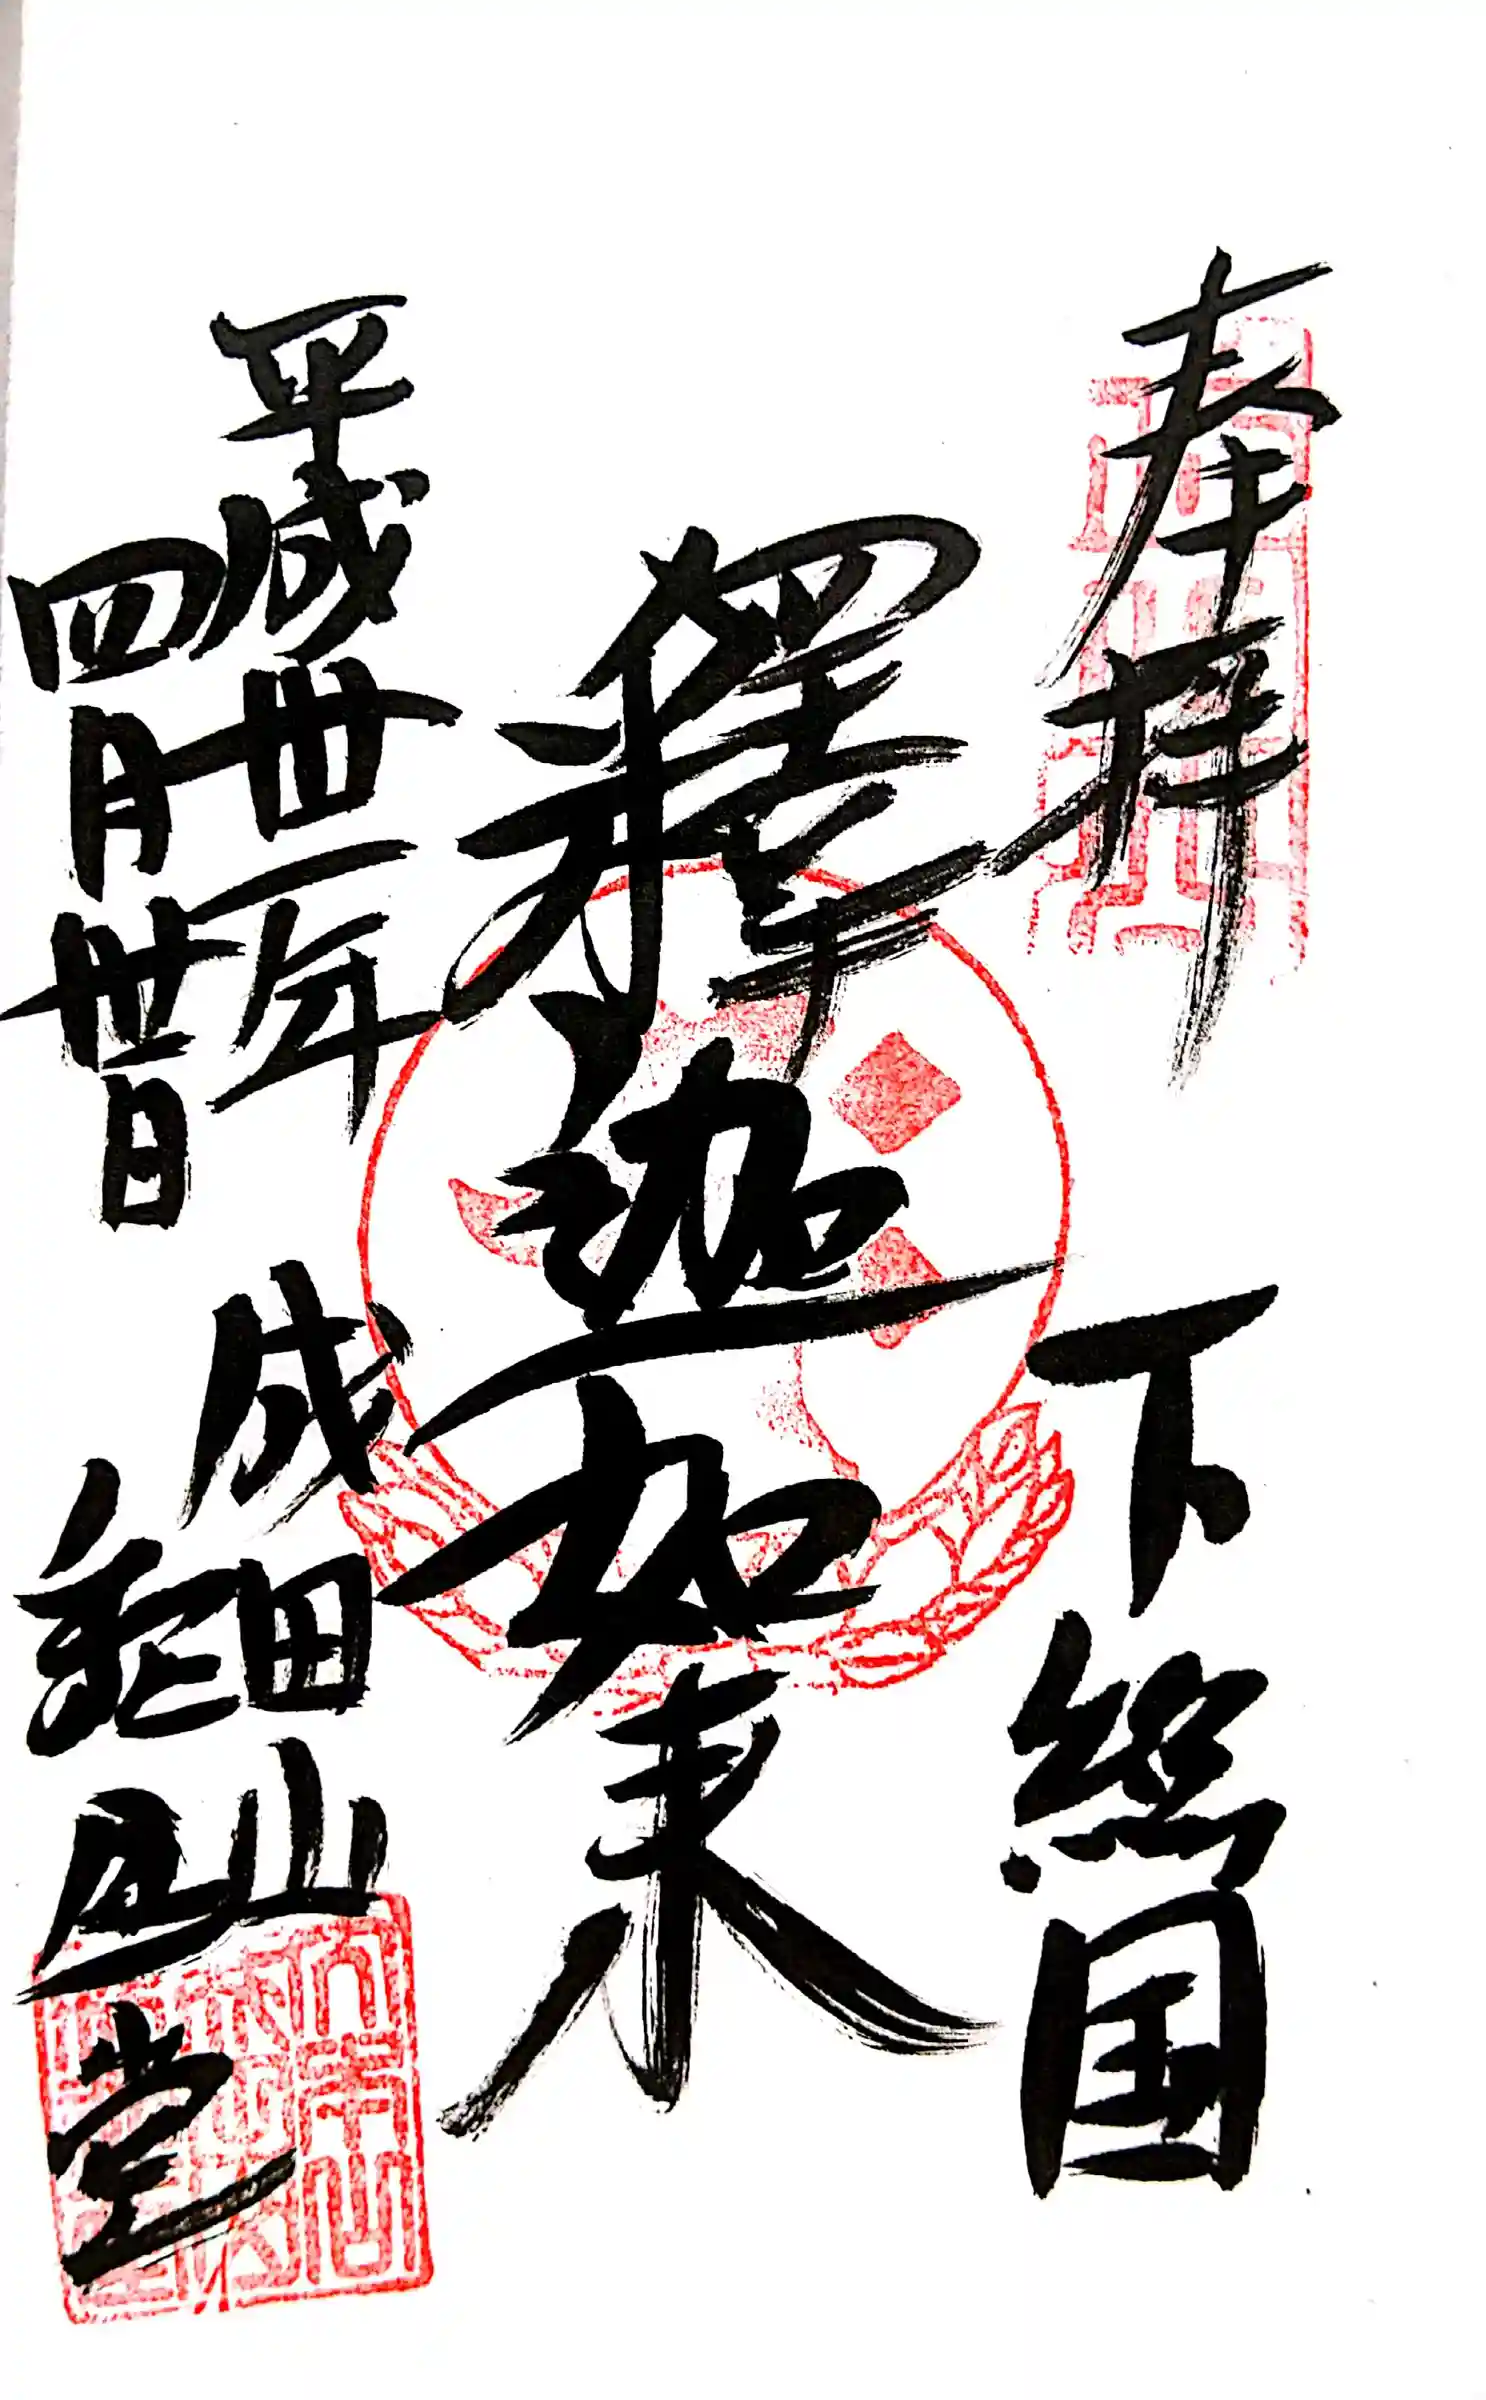 奉拝 下総国
釋迦如来
平成丗一年
四月丗日
成田山
釈迦堂